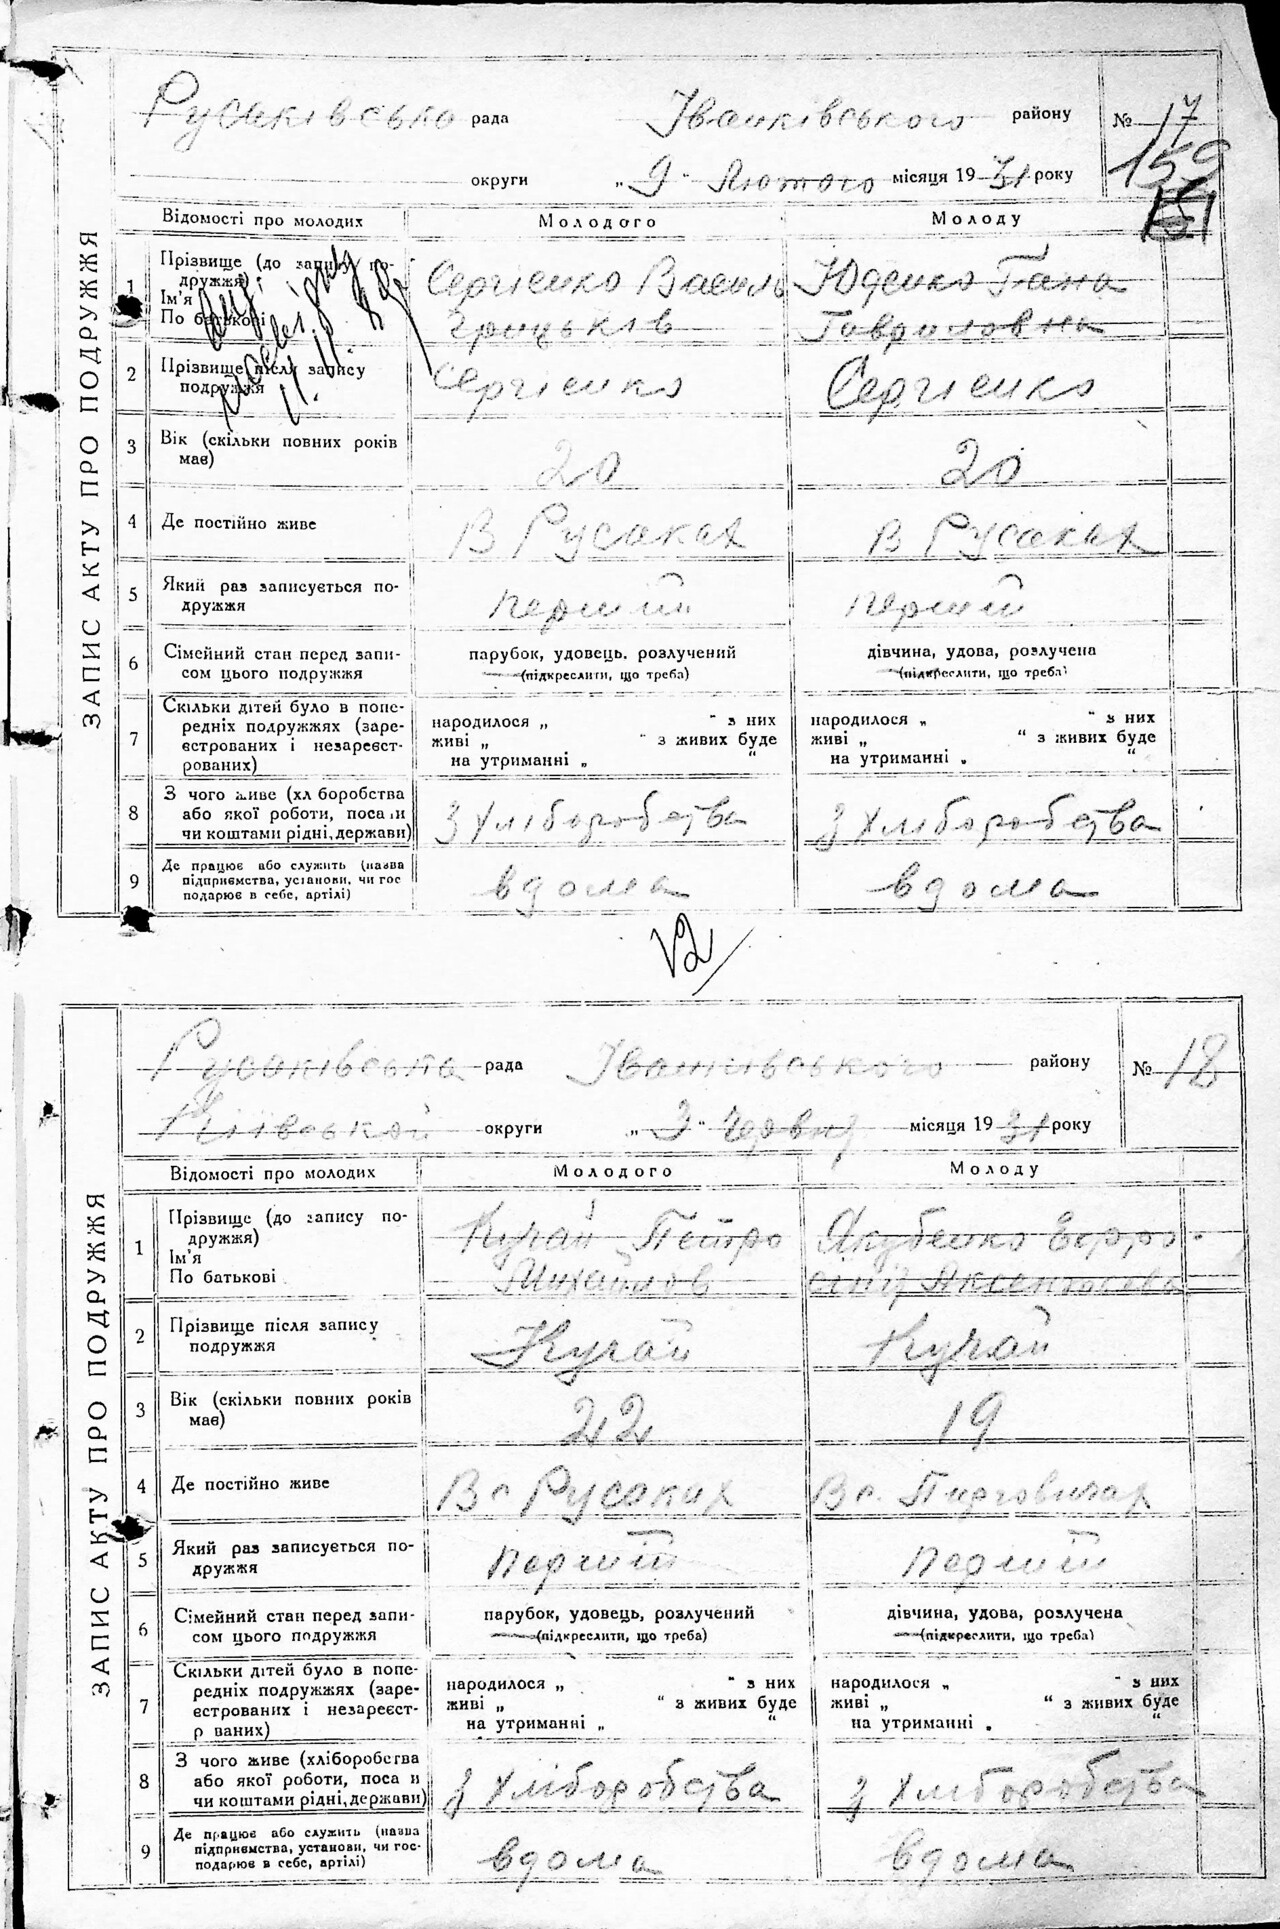 ЗАПИС АКТУ ПРО ПОДРУЖЖЯ
Русаківсько рада Іванківського району № 17
159
151
округи „ 9 " Лютого місяця 19 31 року
Відомості про молодих Молодого Молоду
1 Прізвище (до запису по-
дружжя) Сергієнко Василь Юденко Гана
Ім'я
По батькові Грицьків Гавриловна
11. 11.
2 Прізвище після запису
подружжя Сергієнко Сергієнко
3 Вік (скільки повних років
має) 20 20
4 Де постійно живе В Русаках В Русаках
5 Який раз записується по-
дружжя перший перший
6 Сімейний стан перед запи-
сом цього подружжя парубок, удовець, розлучений дівчина, удова, розлучена
(підкреслити, що треба) (підкреслити, що треба)
7 Скільки дітей було в попе-
редніх подружжях (заре-
єстрованих і незареєст-
рованих)
народилося „ " з них народилося „ " з них
живі „ " з живих буде живі „ " з живих буде
на утриманні „ " на утриманні „ "
8 З чого живе (хл боробства
або якої роботи, поса и
чи коштами рідні, держави) З Хліборобства З Хліборобства
9 Де працює або служить (назва
підприємства, установи, чи гос
подарює в себе, артілі) вдома вдома
12
ЗАПИС АКТУ ПРО ПОДРУЖЖЯ
Русаківська рада Іванківського району № 18
Київської округи „ 3 " Червня місяця 19 31 року
Відомості про молодих Молодого Молоду
1 Прізвище (до запису по-
дружжя) Кучай Петро Якубенко Єфро-
Ім'я
По батькові Михайлов синія
2 Прізвище після запису
подружжя Кучай Кучай
3 Вік (скільки повних років
має) 22 19
4 Де постійно живе В с Русаках В с. Пироговичах
5 Який раз записується по-
дружжя перший перший
6 Сімейний стан перед запи-
сом цього подружжя парубок, удовець, розлучений дівчина, удова, розлучена
(підкреслити, що треба) (підкреслити, що треба)
7 Скільки дітей було в попе-
редніх подружжях (заре-
єстрованих і незареєст-
р ваних)
народилося „ " з них народилося „ " з них
живі „ " з живих буде живі „ " з живих буде
на утриманні „ " на утриманні „ "
8 З чого живе (хліборобства
або якої роботи, поса и
чи коштами рідні, держави) З Хліборобства З Хліборобства
9 Де працює або служить (назва
підприємства, установи, чи гос-
подарює в себе, артілі) вдома вдома